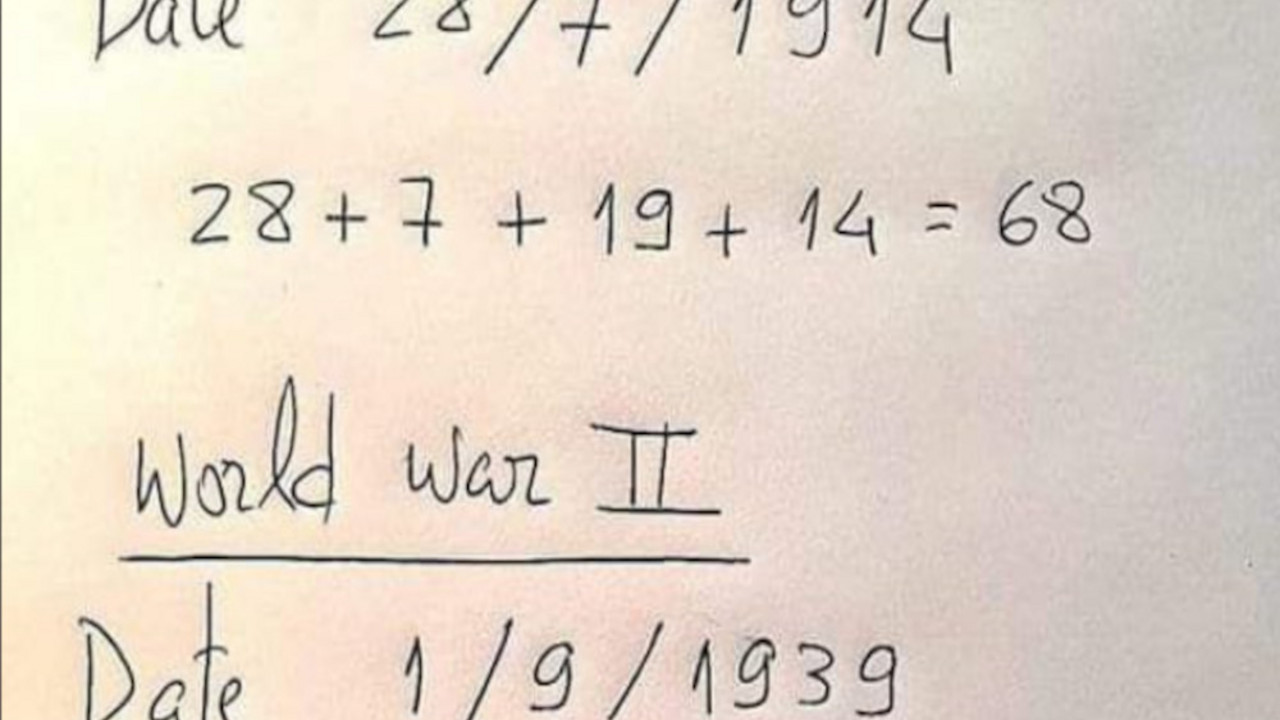 Date 28/7/1914
28 + 7 + 19 + 14 = 68
World war II
Date 1/9/1939